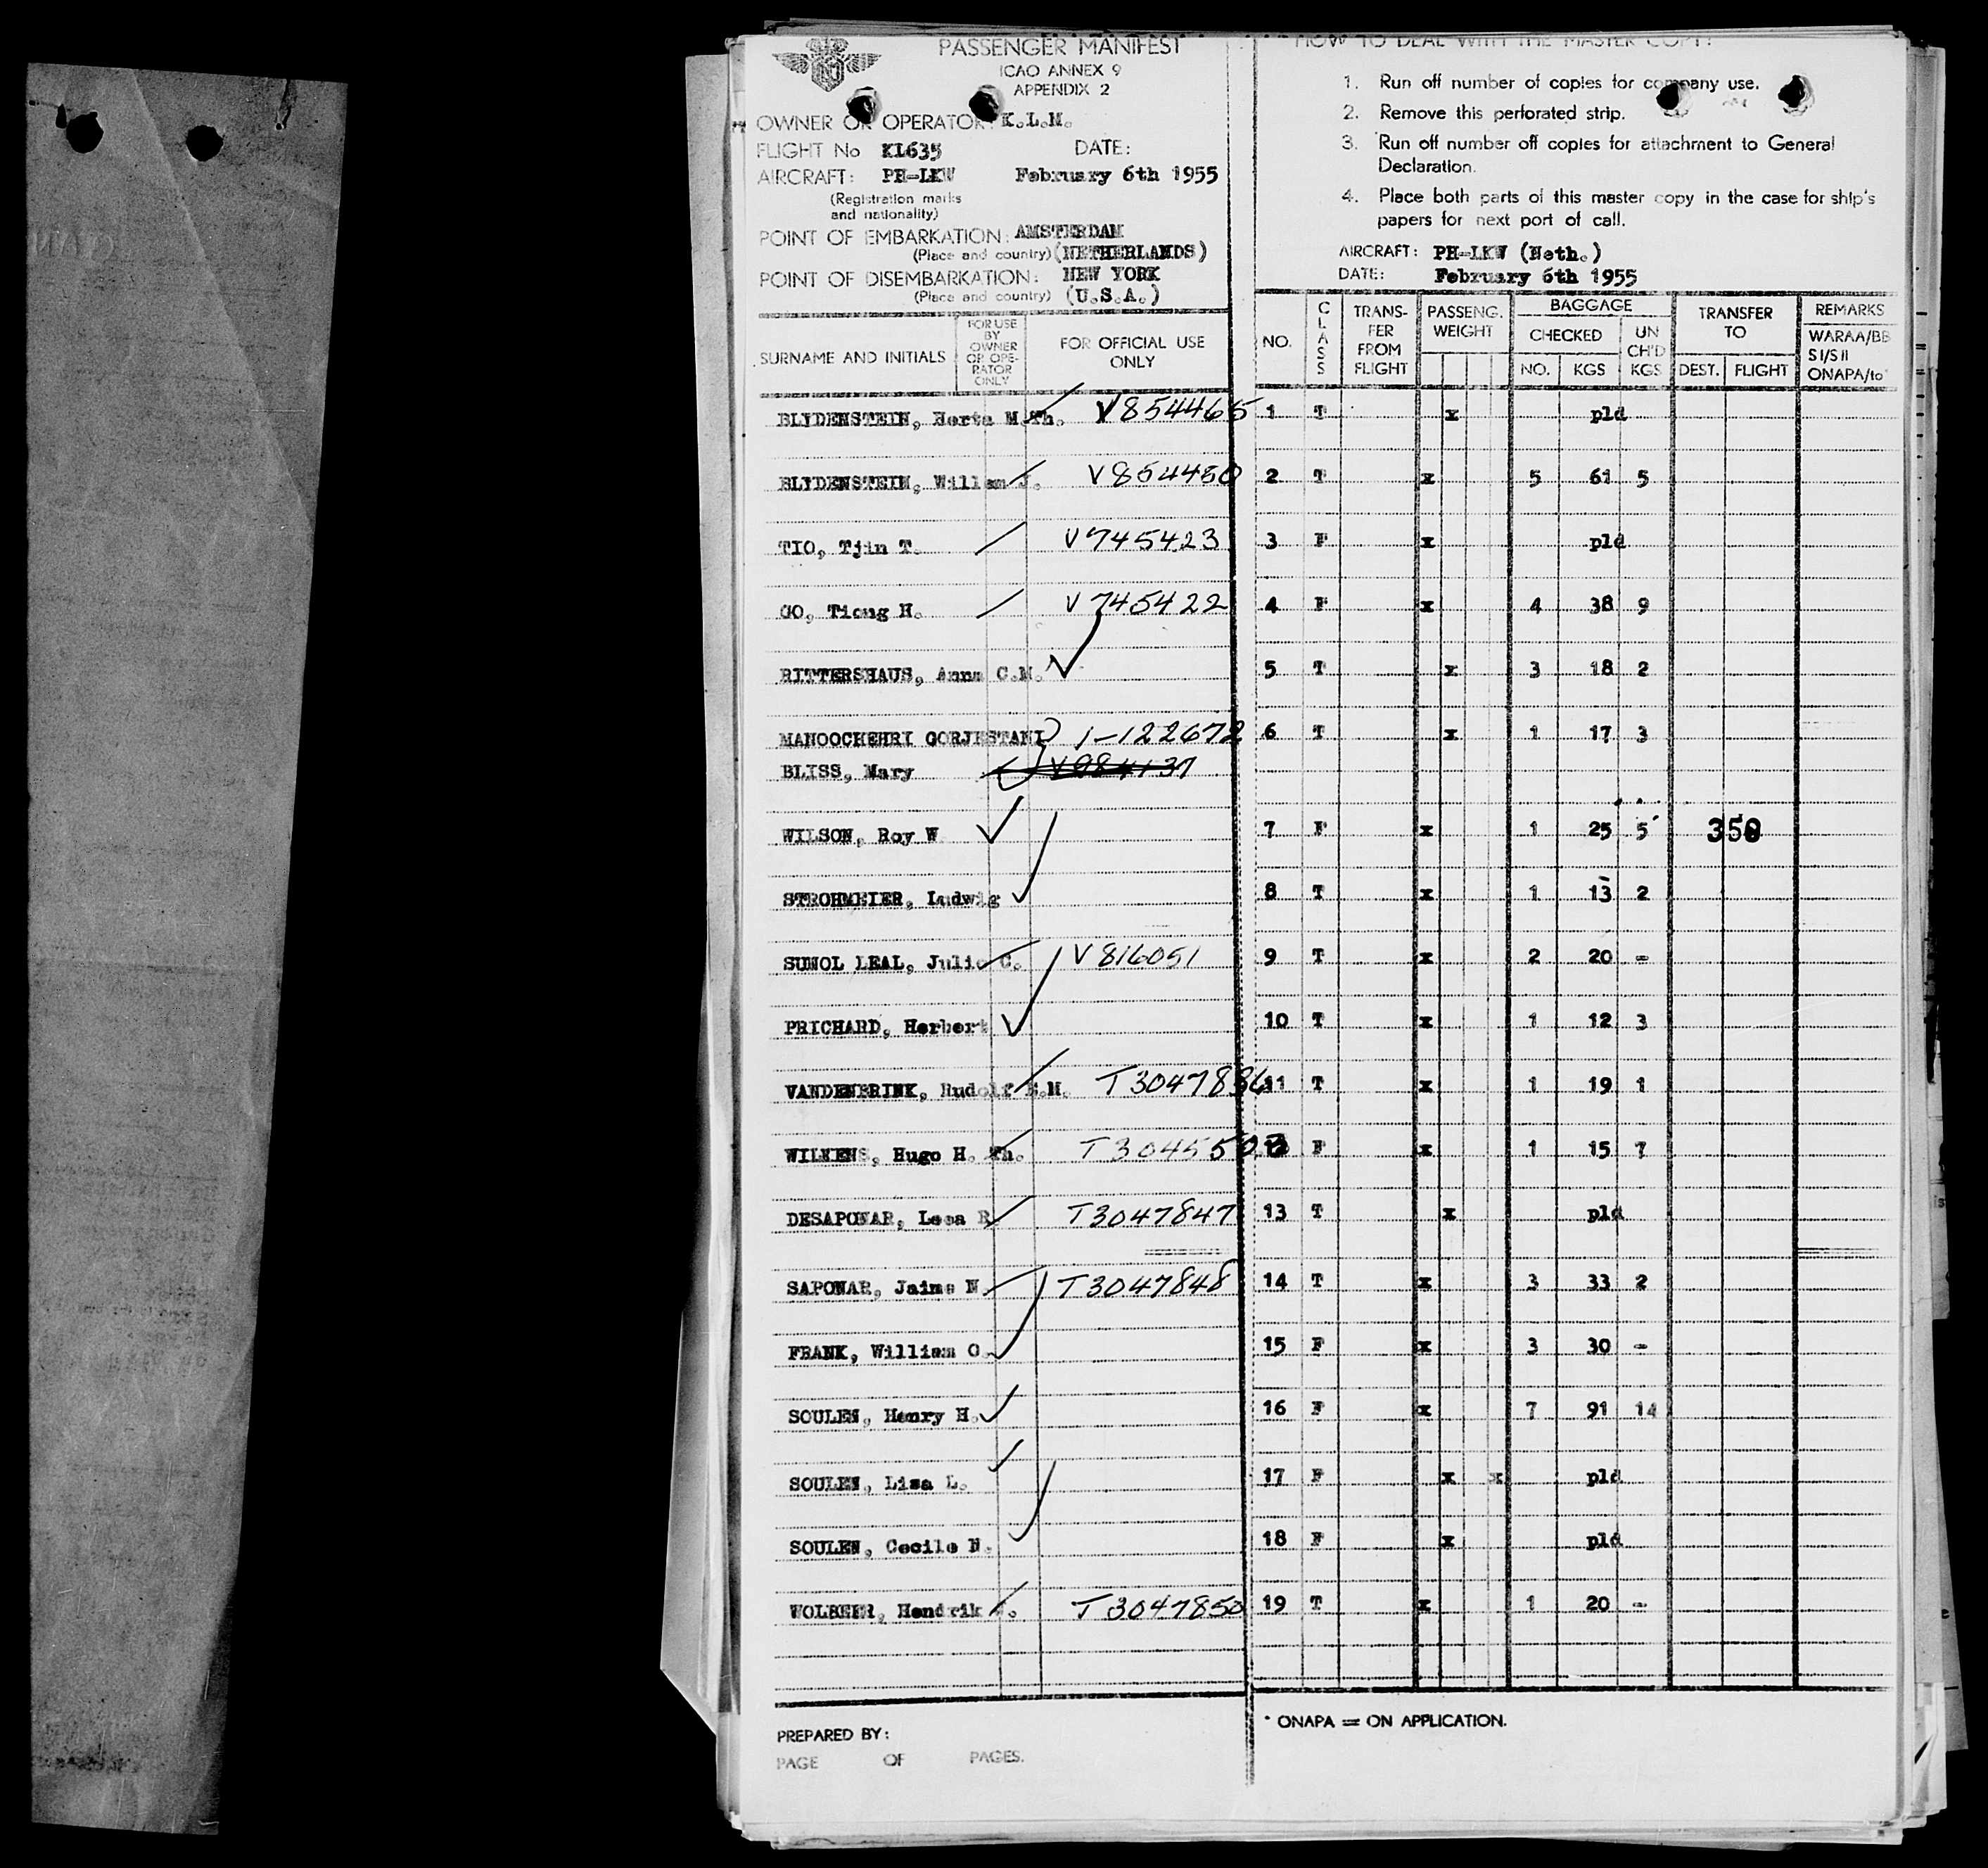 PASSENGER MANIFEST
ICAO ANNEX 9
APPENDIX 2
OWNER OR OPERATOR: K.L.M.
FLIGHT No KL635 DATE:
AIRCRAFT: PH-LKW February 6th 1955
(Registration marks
and nationality)
POINT OF EMBARKATION: AMSTERDAM
(Place and country) (NETHERLANDS)
POINT OF DISEMBARKATION: NEW YORK
(Place and country) (U.S.A.)
SURNAME AND INITIALS
FOR USE
BY
OWNER
OR OPE-
RATOR
ONLY
FOR OFFICIAL USE
ONLY
BLYDENSTEIN, Herta M.Th. V854465
BLYDENSTEIN, Willem J. V854450
TIO, Tjin T. V745423
GO, Tiong H. V745422
RITTERSHAUS, Anna C.M.
MANOOCHEHRI GORJESTANI 1-122672
BLISS, Mary
WILSON, Roy W.
STROHMEIER, Ludwig
SUNOL LEAL, Julio C. V816051
PRICHARD, Herbert
VANDENBRINK, Rudolf E.M. T3047836
WILKENS, Hugo H. Th.
DESAPONAR, Lesa R. T3047847
SAPONAR, Jaime N. T3047848
FRANK, William O.
SOULEN, Henry H.
SOULEN, Lisa L.
SOULEN, Cecile N.
WOLBEER, Hendrik T3047850
PREPARED BY:
PAGE OF PAGES.
HOW TO DEAL WITH THE MASTER COPY:
1. Run off number of copies for company use.
2. Remove this perforated strip.
3. Run off number off copies for attachment to General
Declaration.
4. Place both parts of this master copy in the case for ship's
papers for next port of call.
AIRCRAFT: PH-LKW (Neth.)
DATE: February 6th 1955
NO.
CLASS
TRANS-
FER
FROM
FLIGHT
PASSENG.
WEIGHT
BAGGAGE
CHECKED
NO. KGS
UN
CH'D
KGS
TRANSFER
TO
DEST. FLIGHT
REMARKS
WARAA/BB
SI/SII
ONAPA/to*
1 T x pld
2 T x 5 61 5
3 F x pld
4 F x 4 38 9
5 T x 3 18 2
6 T x 1 17 3
7 F x 1 25 5 350
8 T x 1 13 2
9 T x 2 20 -
10 T x 1 12 3
11 T x 1 19 1
12 F x 1 15 7
13 T x pld
14 T x 3 33 2
15 F x 3 30 -
16 F x 7 91 14
17 F x x pld
18 F x pld
19 T x 1 20 -
* ONAPA = ON APPLICATION.